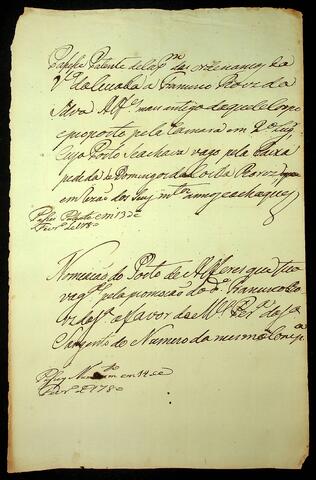 Passe Patente de Cap.m das Ordenanças da
V.a de Cuiaba a Francisco Roiz da
Silva Alf.es mais antigo daquele Corpo
e proposto pela Camara em 2.o Lug.
Cujo Posto se achava vago pela baixa
pedida de Domingos da Costa
em razão dos seus m.tos annos e achaques
Passou Patente em 13 de
Fevr.o de 178
Nomeação do Posto de Alferes que ficou
vago pela promoção do d.o Francisco Ro
iz da S.a a favor de M.el Per.a da S.a
Sargento do Numero da mesma Comp.a
Passou Nomeam em 14 de
Fevr.o de 178